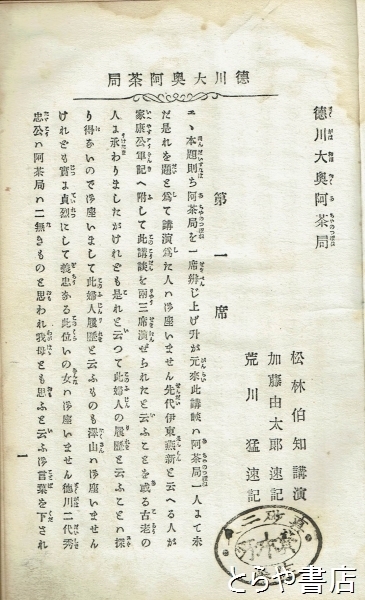 局茶阿奥大川德
德川大奥阿茶局
松林伯知講演
加藤由太郎速記
荒川猛速記
第一席
エヽ本題則ち阿茶局を一席辨じ上げ升が元來此講談ハ阿茶局一人まて未
だ是れを題と爲て講演爲た人ハ御座いません先代伊東燕新と云へる人が
家康公軍記へ附して此講談を兩三席演ぜられたと云ふことを或る古老の
人よ承わりましたがけれども是れと云つて此婦人の履歷と云ふことハ探
り得ないので御座いまして此婦人履歷と云ふものも澤山ハ御座いません
けれども實よ貞烈にして義忠なる此位いの女ハ御座いません德川二代秀
忠公ハ阿茶局ハ二無きものと思われ我母とも思ふと云ふ御言葉を下され
一
とらや書店